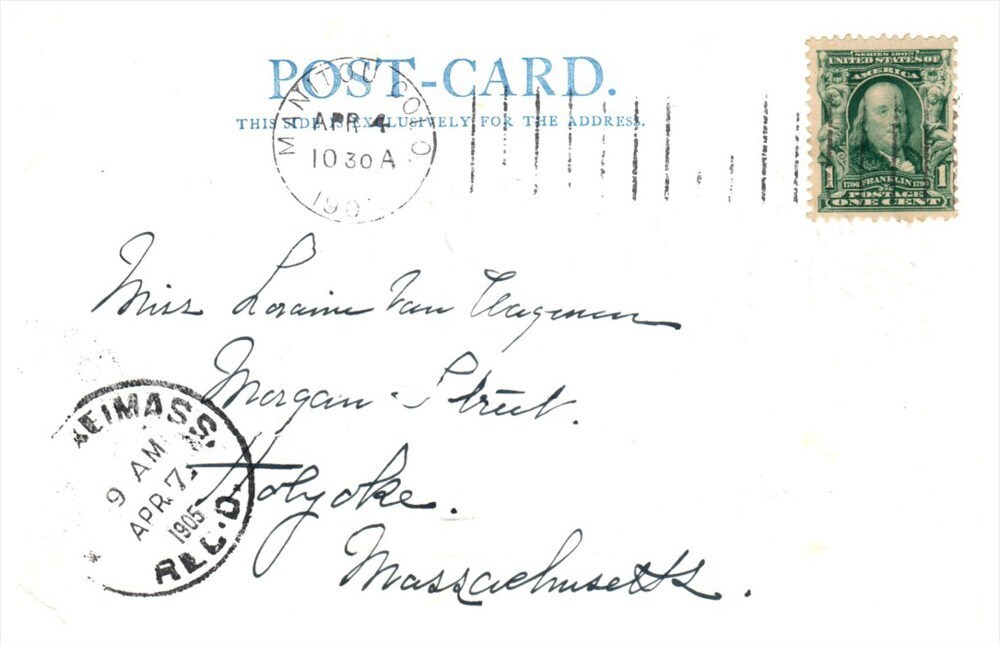 POST-CARD.
THIS SIDE IS EXCLUSIVELY FOR THE ADDRESS.
MANITOU, COLO.
APR 4
1030A
190
SERIES 1902
UNITED STATES OF
AMERICA
1706 FRANKLIN 1790
1 1
POSTAGE
ONE CENT
Miss Loraine Van Wagenen
Morgan Street.
Holyoke.
Massachusetts.
MASS.
9 AM
APR 7
1905
REC'D.